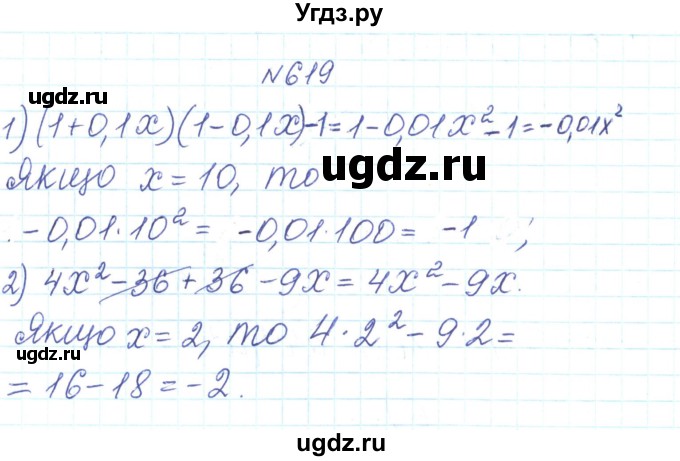 Угдз.ру
№619
1) (1+0,1x)(1-0,1x)-1=1-0,01x²-1=-0,01x²
угдз.ру
Якщо x=10, то
ugdz.ru
-0,01·10²= -0,01·100= -1 ;
2) 4x²-36+36-9x=4x²-9x.
Якщо x=2, то 4·2²-9·2=
ugdz.ru
ugdz.ru
=16-18=-2.
ugdz.ru